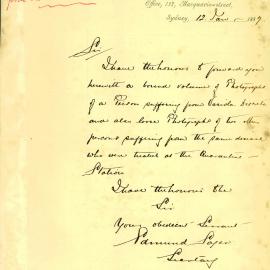 Office, 127, Macquarie-street,
Sydney, 12 Jany 1887
Sir
I have the honour to forward you
herewith a bound volume of Photographs
of a Person suffering from
and also loose Photographs of two other
persons suffering from the same disease
who were treated at the Quarantine
Station
I have the honour to be
Sir
Your obedient Servant
Edmund Sager
Secretary